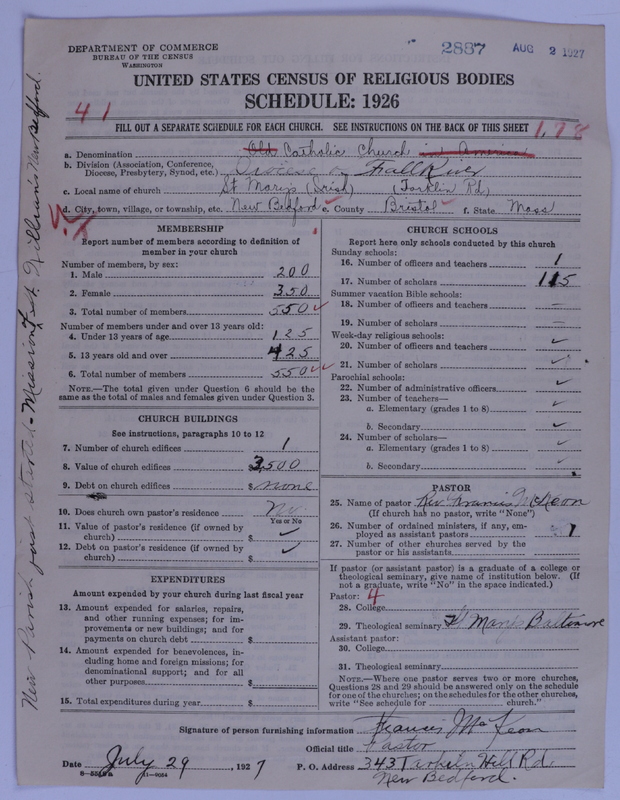 DEPARTMENT OF COMMERCE
BUREAU OF THE CENSUS
WASHINGTON
2887
AUG 2 1927
UNITED STATES CENSUS OF RELIGIOUS BODIES
SCHEDULE: 1926
41
FILL OUT A SEPARATE SCHEDULE FOR EACH CHURCH. SEE INSTRUCTIONS ON THE BACK OF THIS SHEET
1.78
a. Denomination Old Catholic Church in America
b. Division (Association, Conference, Diocese, Presbytery, Synod, etc.) Diocese of Fall River
c. Local name of church St Mary's (Irish) (Tarklin Rd)
d. City, town, village, or township, etc. New Bedford e. County Bristol f. State Mass
MEMBERSHIP
Report number of members according to definition of
member in your church
Number of members, by sex:
1. Male 200
2. Female 350
3. Total number of members 550
Number of members under and over 13 years old:
4. Under 13 years of age 125
5. 13 years old and over 425
6. Total number of members 550
NOTE.—The total given under Question 6 should be the
same as the total of males and females given under Question 3.
CHURCH BUILDINGS
See instructions, paragraphs 10 to 12
7. Number of church edifices 1
8. Value of church edifices $3,500
9. Debt on church edifices $ none
10. Does church own pastor's residence? No
Yes or No
11. Value of pastor's residence (if owned by
church) $ ✓
12. Debt on pastor's residence (if owned by
church) $ ✓
EXPENDITURES
Amount expended by your church during last fiscal year
13. Amount expended for salaries, repairs,
and other running expenses; for im-
provements or new buildings; and for
payments on church debt $
14. Amount expended for benevolences, in-
cluding home and foreign missions; for
denominational support; and for all
other purposes $
15. Total expenditures during year $
CHURCH SCHOOLS
Report here only schools conducted by this church
Sunday schools:
16. Number of officers and teachers 1
17. Number of scholars 115
Summer vacation Bible schools:
18. Number of officers and teachers –
19. Number of scholars –
Week-day religious schools:
20. Number of officers and teachers ✓
21. Number of scholars ✓
Parochial schools:
22. Number of administrative officers ✓
23. Number of teachers—
a. Elementary (grades 1 to 8) ✓
b. Secondary ✓
24. Number of scholars—
a. Elementary (grades 1 to 8) ✓
b. Secondary ✓
PASTOR
25. Name of pastor Rev Francis McKeon
(If church has no pastor, write "None")
26. Number of ordained ministers, if any, em-
ployed as assistant pastors 1
27. Number of other churches served by the
pastor or his assistants
If pastor (or assistant pastor) is a graduate of a college or
theological seminary, give name of institution below. (If
not a graduate, write "No" in the space indicated.)
Pastor: 4
28. College
29. Theological seminary St Marys Baltimore
Assistant pastor:
30. College
31. Theological seminary
NOTE.—Where one pastor serves two or more churches,
Questions 28 and 29 should be answered only on the schedule
for one of the churches; on the schedules for the other churches
write "See schedule for church."
Signature of person furnishing information Francis McKeon
Official title Pastor
Date July 29, 1927
P. O. Address 343 Tarkiln Hill Rd.
New Bedford.
11-9054
New Parish just started - Mission of St. Killians New Bedford.